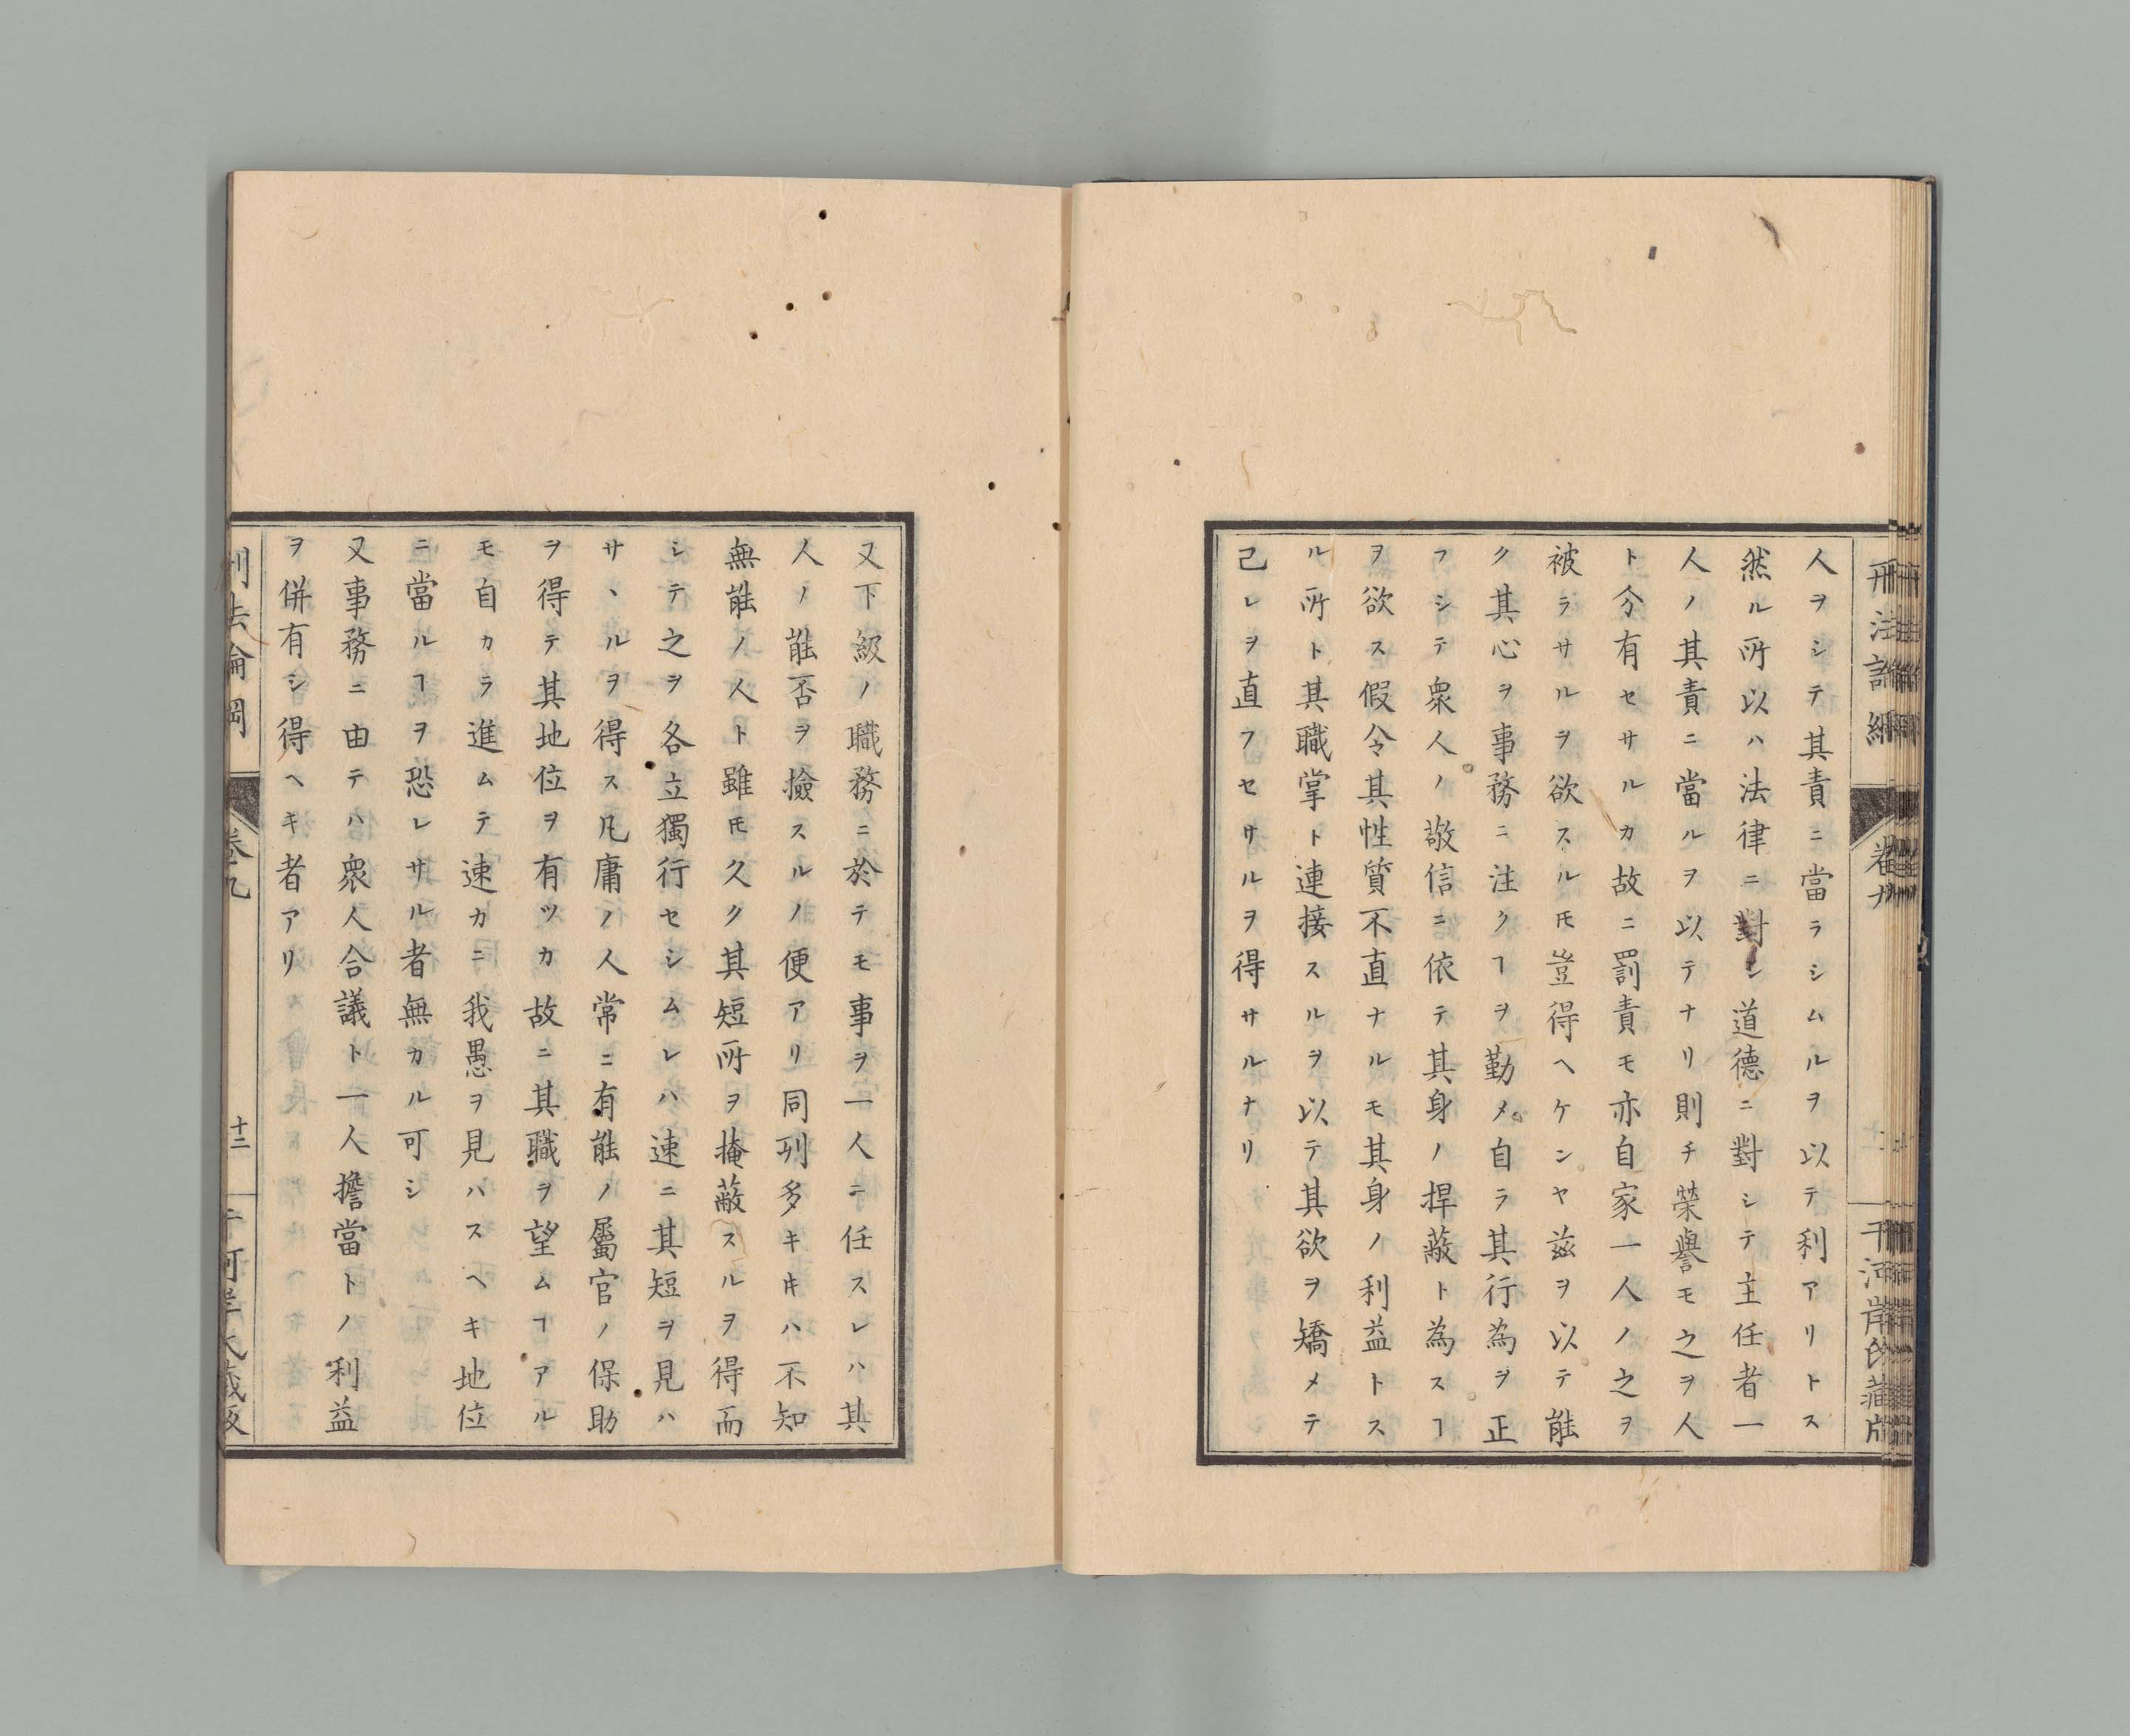 人ヲシテ其責ニ當ラシムルヲ以テ利アリトス
然ル所以ハ法律ニ對シ道德ニ對シテ主任者一
人ノ其責ニ當ルヲ以テナリ則チ榮譽モ之ヲ人
ト分有セサルカ故ニ罰責モ亦自家一人ノ之ヲ
被ラサルヲ欲スルモ豈得ヘケンヤ茲ヲ以テ能
ク其心ヲ事務ニ注クヿヲ勤メ自ラ其行為ヲ正
フシテ衆人ノ敬信ニ依テ其身ノ捍蔽ト為スヿ
ヲ欲ス假令其性質不直ナルモ其身ノ利益トス
ル所ト其職掌ト連接スルヲ以テ其欲ヲ矯メテ
己レヲ直フセサルヲ得サルナリ
又下級ノ職務ニ於テモ事ヲ一人ニ任スレハ其
人ノ能否ヲ撿スルノ便アリ同列多キ𪜈ハ不知
無能ノ人ト雖モ久ク其短所ヲ掩蔽スルヲ得而
シテ之ヲ各立獨行セシムレハ速ニ其短ヲ見ハ
サヽルヲ得ス凡庸ノ人常ニ有能ノ屬官ノ保助
ヲ得テ其地位ヲ有ツカ故ニ其職ヲ望ムヿアル
モ自カラ進ムテ速カニ我愚ヲ見ハスヘキ地位
ニ當ルヿヲ恐レサル者無カル可シ
又事務ニ由テハ衆人合議ト一人擔當トノ利益
ヲ併有シ得ヘキ者アリ
刑法論綱
卷九
十二